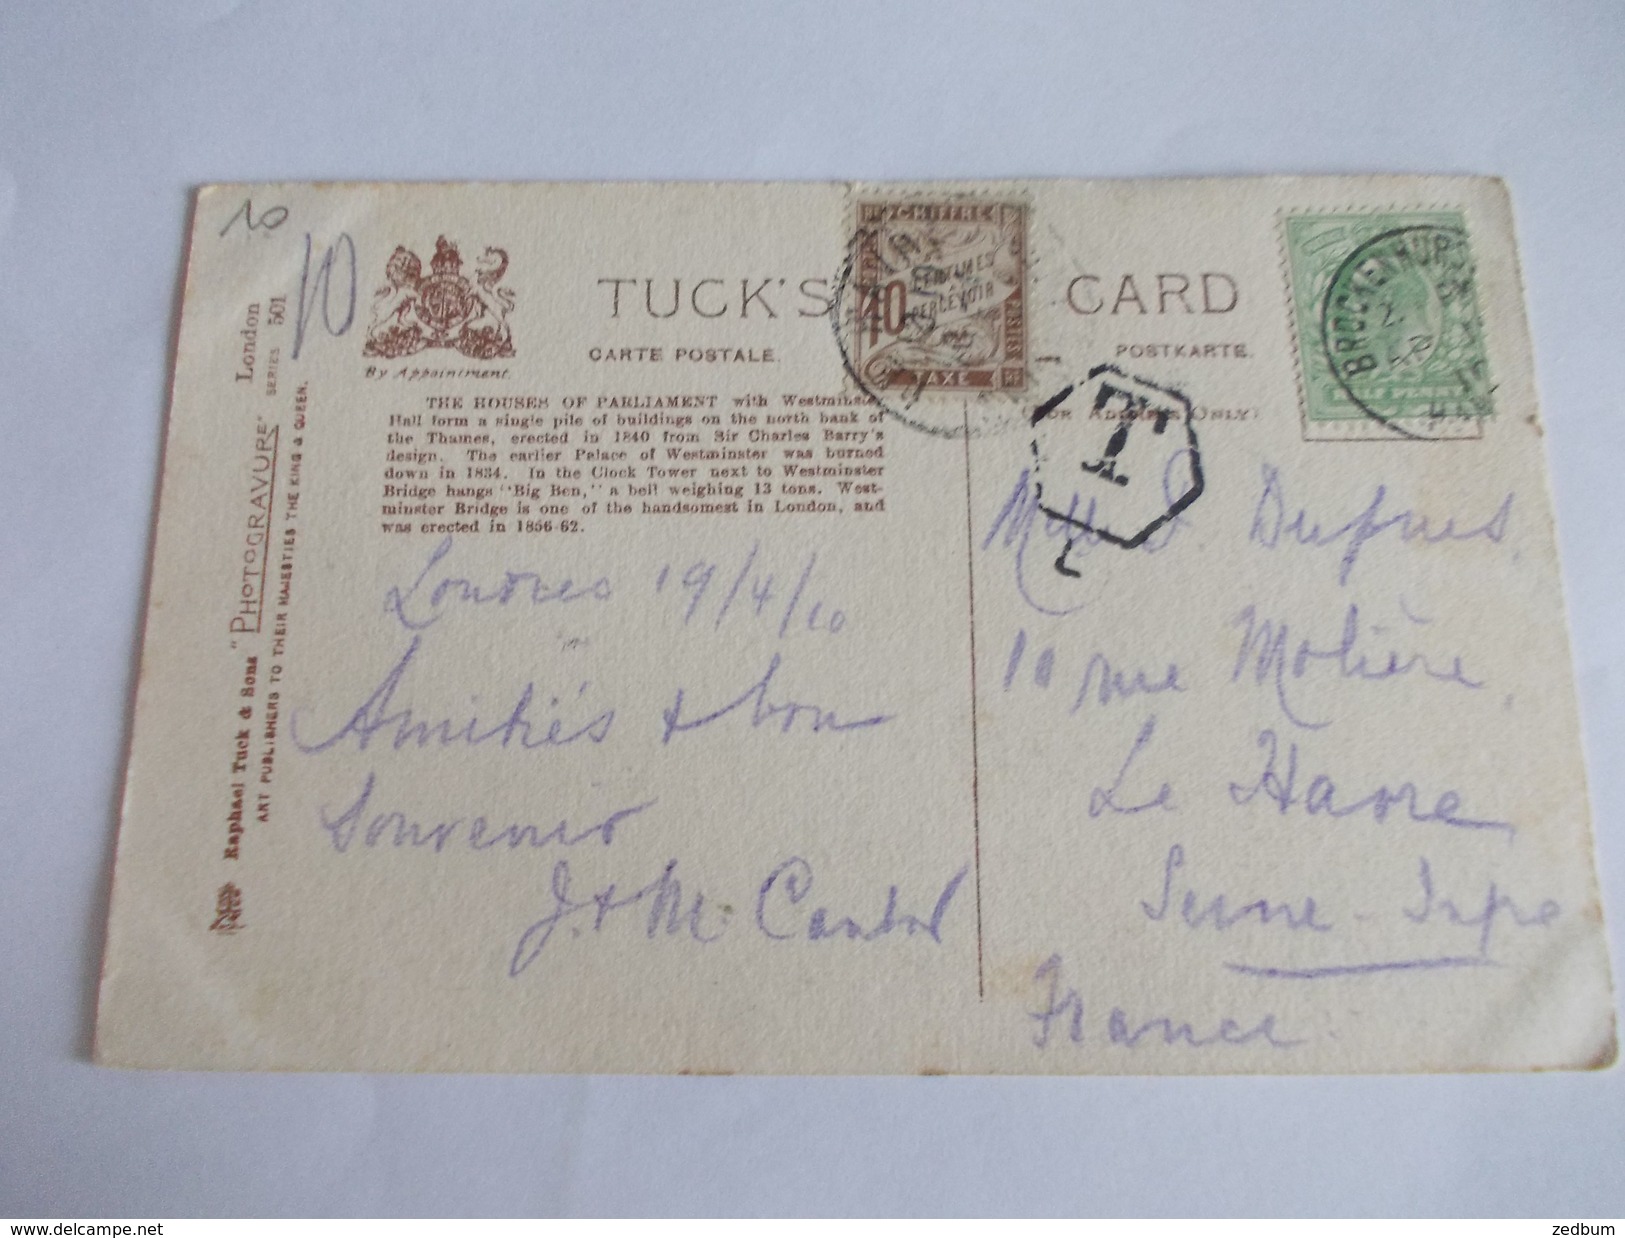 10
10
TUCK'S
CARD
CARTE POSTALE.
POSTKARTE.
By Appointment.
(FOR ADDRESS ONLY)
CHIFFRE
10
CENTIMES
À
PERCEVOIR
TAXE
T
BROCKENHURST
HALF PENNY
London
SERIES 501
Raphael Tuck & Sons "PHOTOGRAVURE"
ART PUBLISHERS TO THEIR MAJESTIES THE KING & QUEEN.
THE HOUSES OF PARLIAMENT with Westminster
Hall form a single pile of buildings on the north bank of
the Thames, erected in 1840 from Sir Charles Barry's
design. The earlier Palace of Westminster was burned
down in 1834. In the Clock Tower next to Westminster
Bridge hangs "Big Ben," a bell weighing 13 tons. West-
minster Bridge is one of the handsomest in London, and
was erected in 1856-62.
Londres 19/4/10
Amitiés & bon
Souvenir
J. & M. Cantor
Melle
10 rue Molière,
Le Havre
Seine-Infre
France.
delcampe.net
zedbum